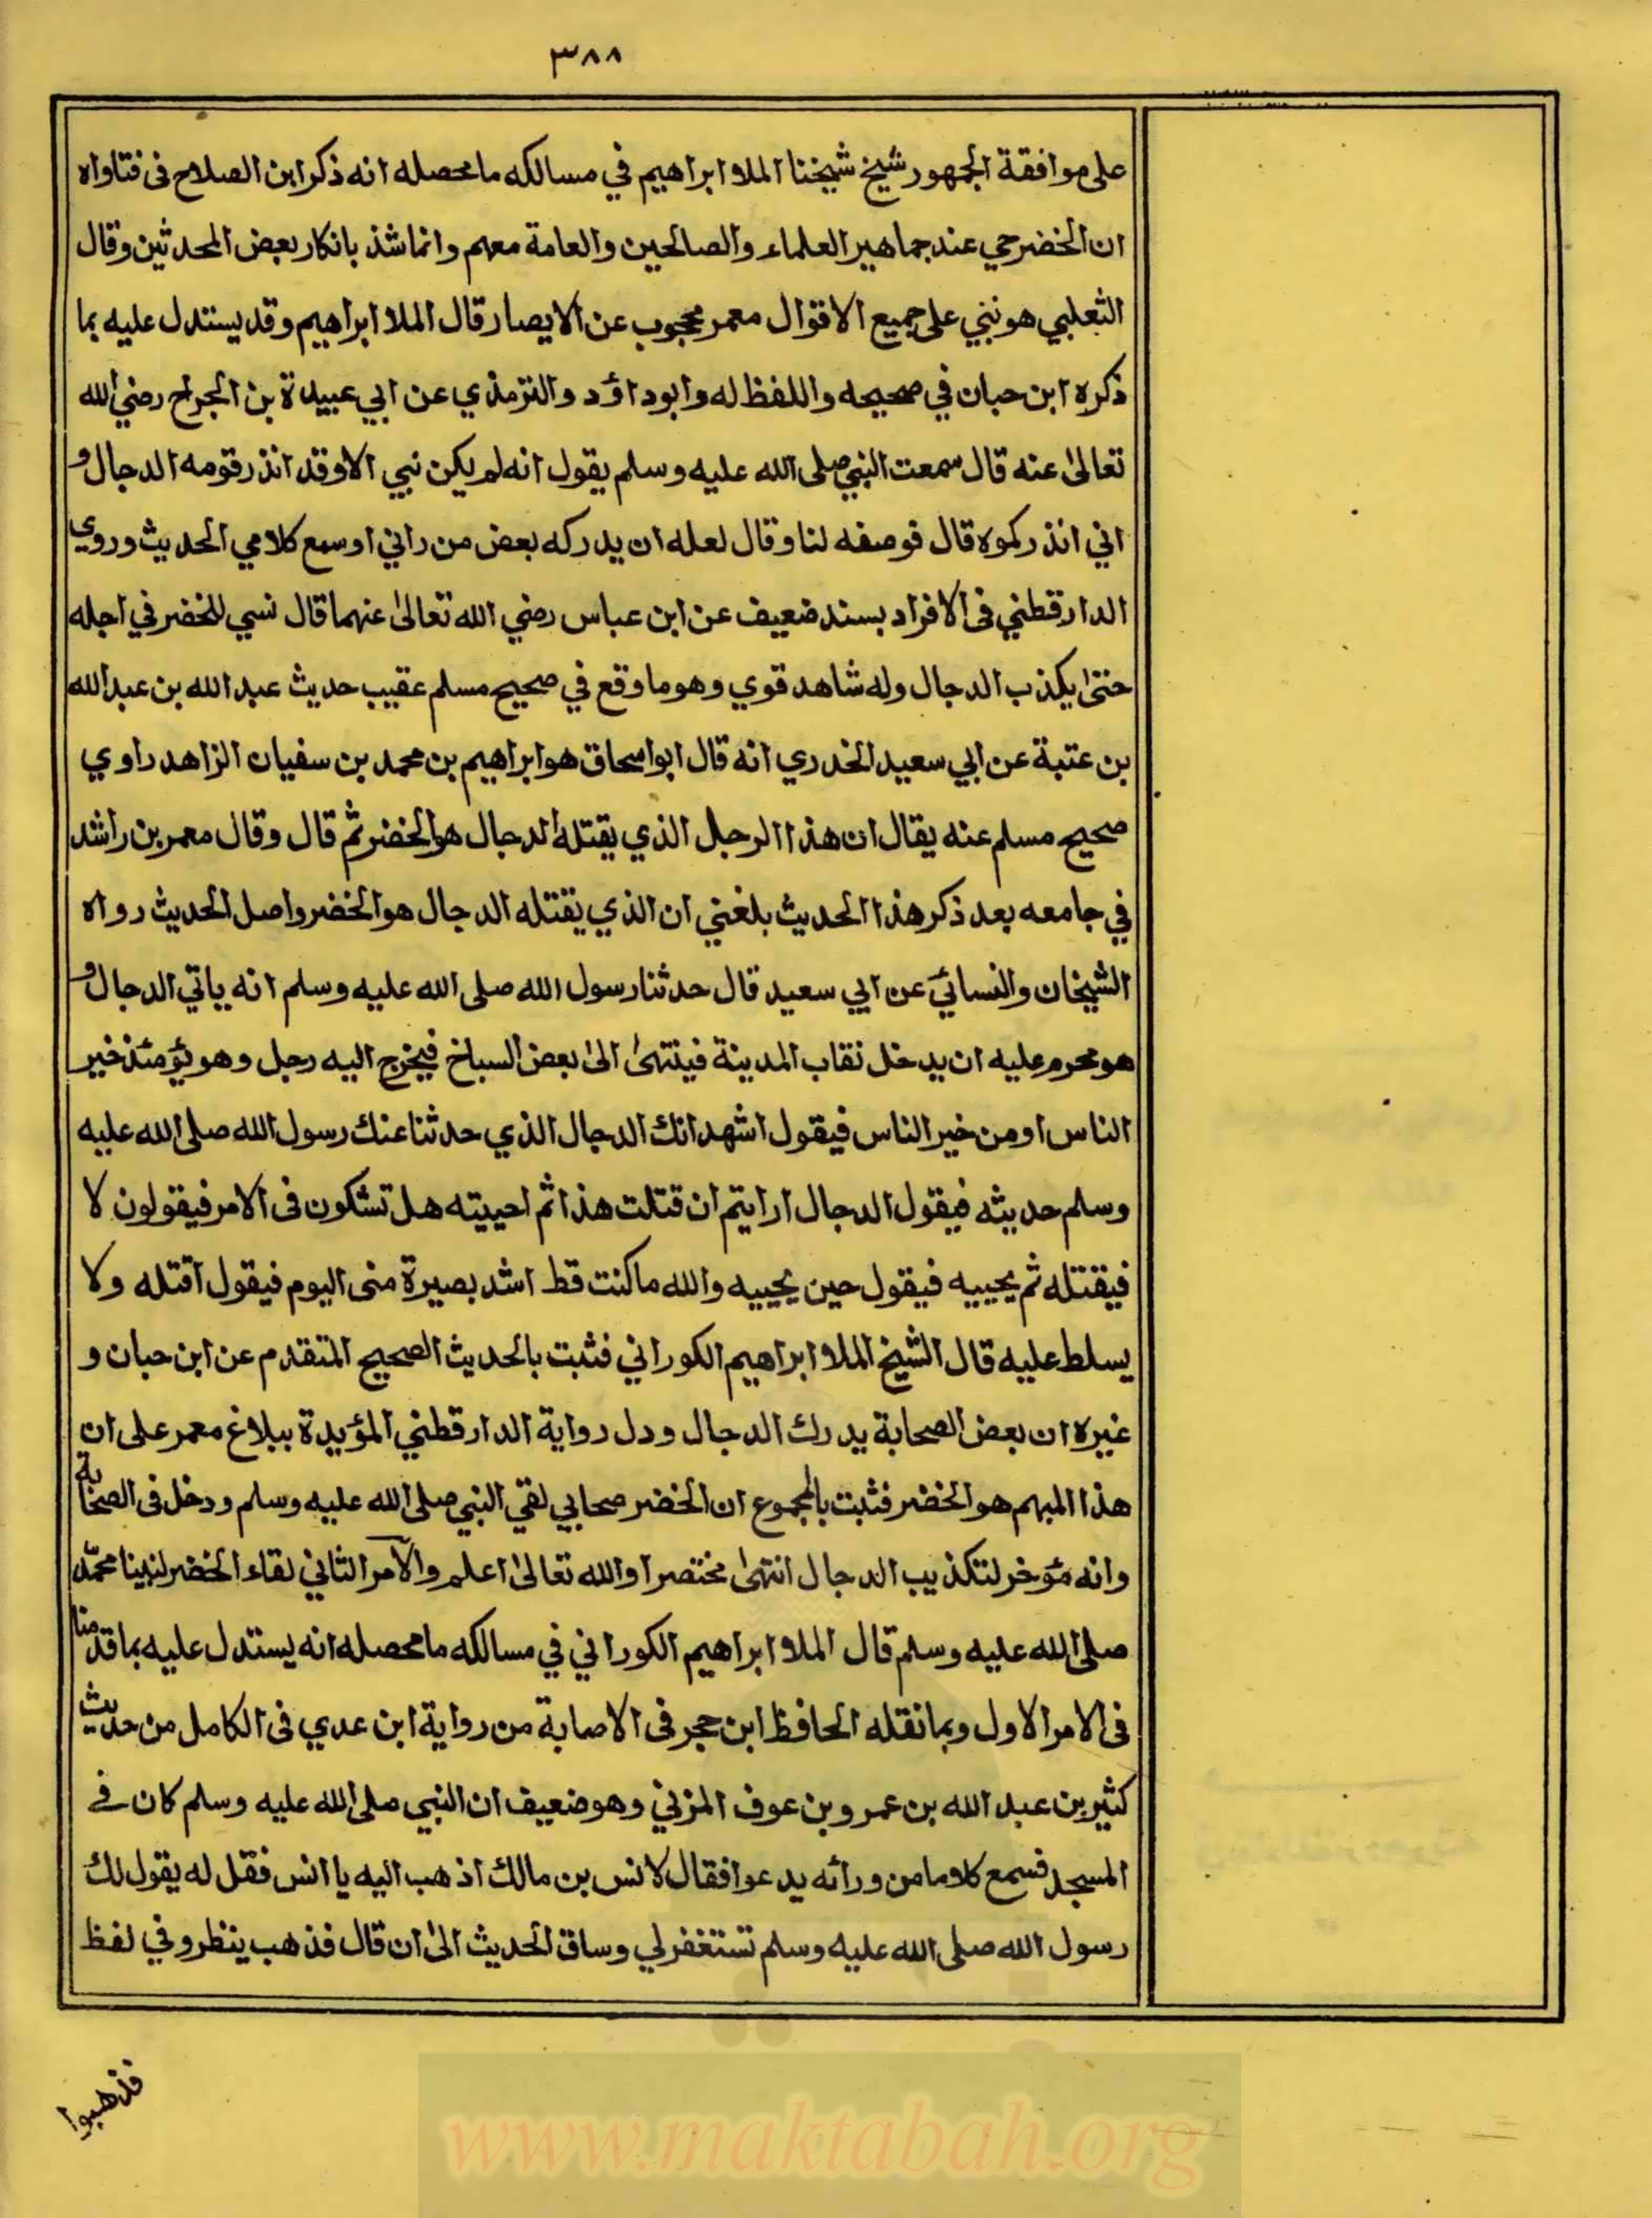 ٣٨٨
على موافقة الجمهور شيخ شيخنا الملا ابراهيم في مسالكه ما محصله انه ذكر ابن الصلاح فى فتاواه
ان الخضر حي عند جماهير العلماء والصالحين والعامة معهم وانما شذ بانكار بعض المحدثين وقال
الثعلبي هو نبي على جميع الاقوال معمر محجوب عن الابصار قال الملا ابراهيم وقد يستدل عليه بما
ذكره ابن حبان في صحيحه واللفظ له وابوداؤد والترمذي عن ابي عبيدة بن الجراح رضي الله
تعالىٰ عنه قال سمعت النبي صلى الله عليه وسلم يقول انه لم يكن نبي الا وقد انذر قومه الدجال و
اني انذركموه قال فوصفه لنا وقال لعله ان يدركه بعض من راني او سمع كلامي الحديث وروي
الدارقطني فى الافراد بسند ضعيف عن ابن عباس رضي الله تعالىٰ عنهما قال نسي للخضر في اجله
حتىٰ يكذب الدجال وله شاهد قوي وهو ما وقع في صحيح مسلم عقيب حديث عبد الله بن عبد الله
بن عتبة عن ابي سعيد الخدري انه قال ابو اسحاق هو ابراهيم بن محمد بن سفيان الزاهد راوي
صحيح مسلم عنه يقال ان هذا الرجل الذي يقتله الدجال هو الخضر ثم قال وقال معمر بن راشد
في جامعه بعد ذكر هذا الحديث بلغني ان الذي يقتله الدجال هو الخضر واصل الحديث رواه
الشيخان والنسائي عن ابي سعيد قال حدثنا رسول الله صلى الله عليه وسلم انه ياتي الدجال و
هو محرم عليه ان يدخل نقاب المدينة فينتهىٰ الىٰ بعض السباخ فيخرج اليه رجل وهو يؤمئذ خير
الناس او من خير الناس فيقول اشهد انك الدجال الذي حدثنا عنك رسول الله صلى الله عليه
وسلم حديثه فيقول الدجال ارايتم ان قتلت هذا ثم احييته هل تشكون فى الامر فيقولون لا
فيقتله ثم يحييه فيقول حين يحييه والله ما كنت قط اشد بصيرة منى اليوم فيقول اقتله ولا
يسلط عليه قال الشيخ الملا ابراهيم الكوراني فثبت بالحديث الصحيح المتقدم عن ابن حبان و
غيره ان بعض الصحابة يدرك الدجال ودل رواية الدارقطني المؤيدة ببلاغ معمر على ان
هذا المبهم هو الخضر فثبت بالمجموع ان الخضر صحابي لقي النبي صلى الله عليه وسلم ودخل فى الصحابة
وانه مؤخر لتكذيب الدجال انتهىٰ مختصرا والله تعالىٰ اعلم والآمر الثاني لقاء الخضر لنبينا محمّد
صلى الله عليه وسلم قال الملا ابراهيم الكوراني في مسالكه ما محصله انه يستدل عليه بما قدمنا
فى الامر الاول وبما نقله الحافظ ابن حجر فى الاصابة من رواية ابن عدي فى الكامل من حديث
كثير بن عبد الله بن عمرو بن عوف المزني وهو ضعيف ان النبي صلى الله عليه وسلم كان في
المسجد فسمع كلاما من ورائه يدعوا فقال لانس بن مالك اذهب اليه يا انس فقل له يقول لك
رسول الله صلى الله عليه وسلم تستغفر لي وساق الحديث الىٰ ان قال فذهب ينظر وفي لفظ
فذهبوا
www.maktabah.org